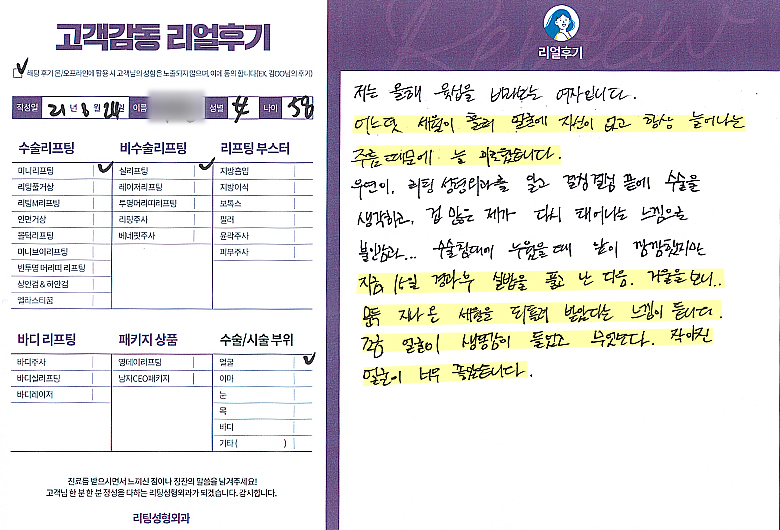 고객감동 리얼후기
해당 후기 온/오프라인에 활용 시 고객님의 성함은 노출되지 않으며, 이에 동의 합니다(EX. 김OO님의 후기)
작성일 21년 8월 24일 이름 성별 女 나이 58
수술리프팅
미니리프팅
리얼풀거상
리팅M리프팅
안면거상
붐턱리프팅
미니브이리프팅
빈투명 머리띠 리프팅
상안검 & 하안검
엘라스티꿈
비수술리프팅
실리프팅
레이저리프팅
투명머리띠리프팅
리팅주사
베네핏주사
리프팅 부스터
지방흡입
지방이식
보톡스
필러
윤곽주사
피부주사
바디 리프팅
바디주사
바디실리프팅
바디레이저
패키지 상품
영데이리프팅
남자CEO패키지
수술/시술 부위
얼굴
이마
눈
목
바디
기타 ( )
진료를 받으시면서 느끼신 점이나 칭찬의 말씀을 남겨주세요!
고객님 한 분 한 분 정성을 다하는 리팅성형외과가 되겠습니다. 감사합니다.
리팅성형외과
Review
리얼후기
저는 올해 육십을 바라보는 여자입니다.
어느덧 세월이 흘러 얼굴에 자신이 없고 항상 늘어나는
주름 때문에 늘 괴로웠습니다.
우연히, 리팅 성형외과를 알고 결정결심 끝에 수술을
생각하고, 겁 많은 제가 다시 태어나는 느낌으로
불안감과... 수술침대에 누웠을 때 앞이 깜깜했지만
지금 15일 경과후 실밥을 풀고 난 다음. 거울을 보니..
문득 지나온 세월을 되돌려 받았다는 느낌이 듭니다.
얼굴이 생동감이 돌았고 무엇보다. 작아진
얼굴이 너무 좋았습니다.